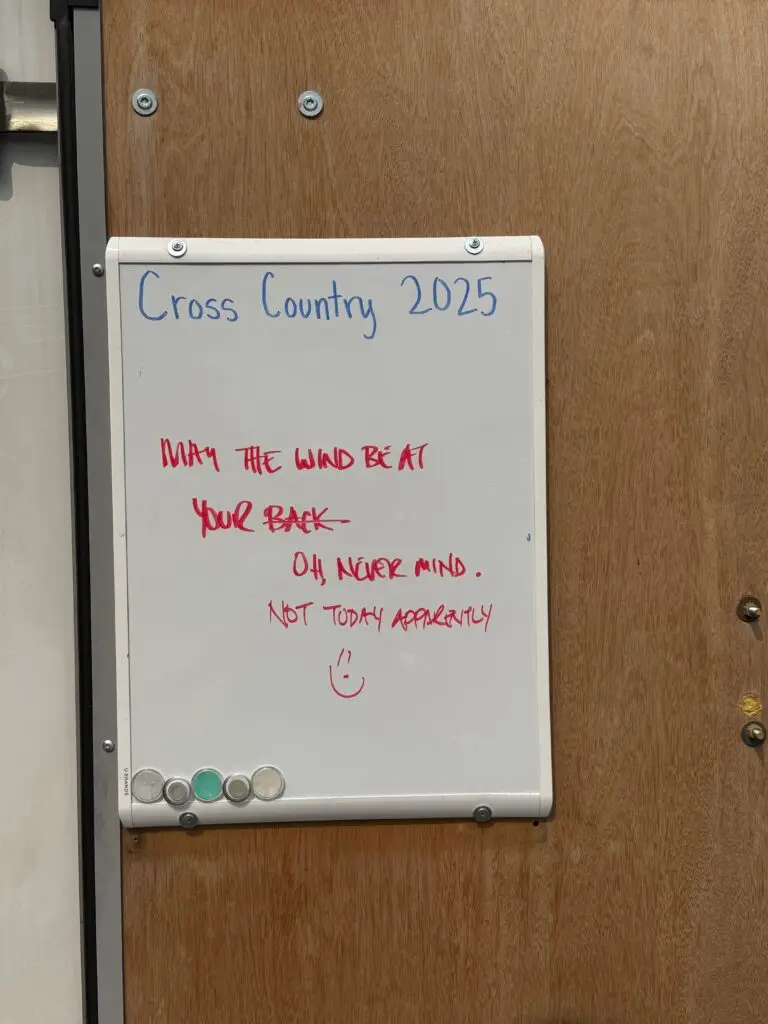 Cross Country 2025
MAY THE WIND BE AT
YOUR BACK
OH, NEVER MIND.
NOT TODAY APPARENTLY
U BRANDS